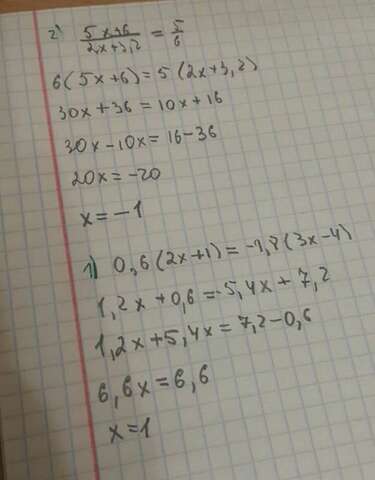 2) (5x+6)/(2x+3,2) = 5/6
6(5x+6)=5(2x+3,2)
30x+36=10x+16
30x-10x=16-36
20x=-20
x=-1
1) 0,6(2x+1)=-1,8(3x-4)
1,2x+0,6=-5,4x+7,2
1,2x+5,4x=7,2-0,6
6,6x=6,6
x=1